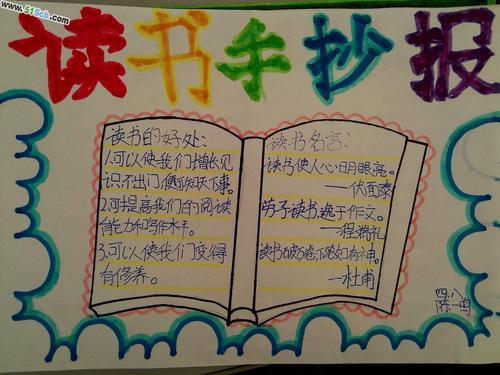 www.51Scb.com
读书手抄报
读书的好处:
1.可以使我们增长见
识,不出门,便可知天下事。
2.可提高我们的阅读
能力和写作水平。
3.可以使我们变得
有修养。
读书名言:
读书使人心明眼亮。
—伏面泰
劳于读书,逸于作文。
—程端礼
读书破万卷,下笔如有神。
—杜甫
四、八